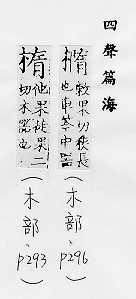 四聲篇海
果切狹長
也車笭中器
(木部、p296)
楕他果徒果二
切木器也
(木部、p293)